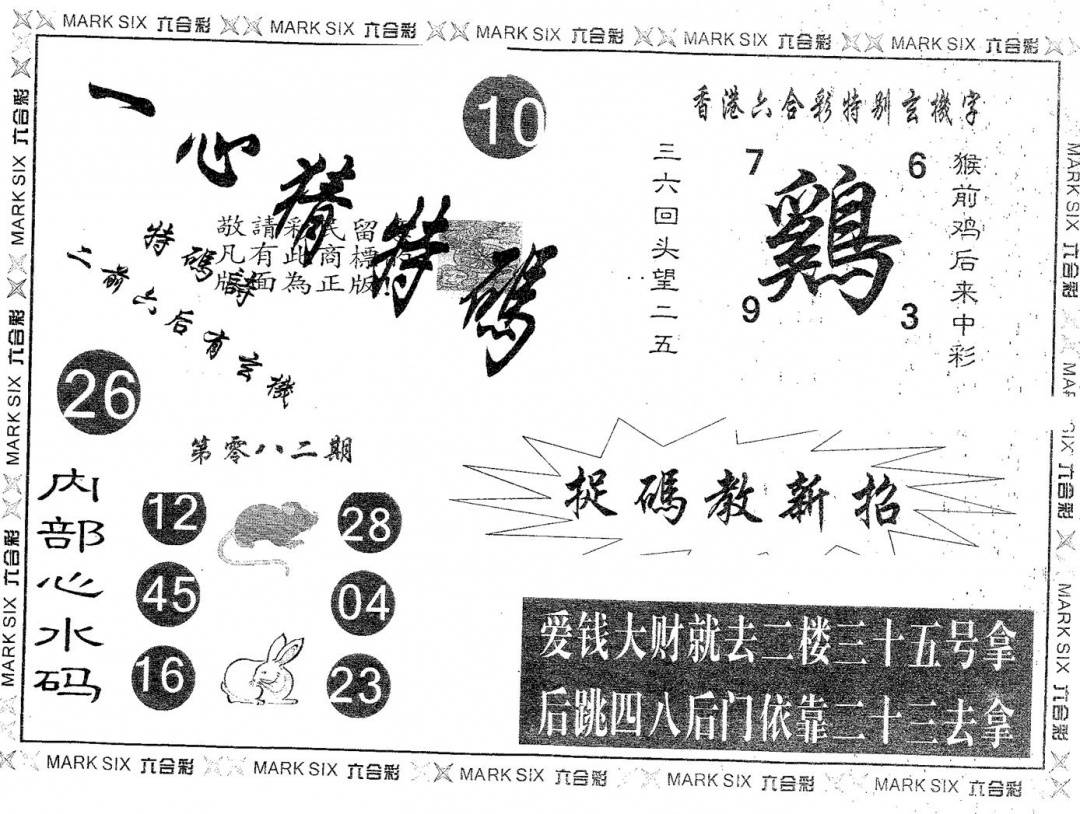 MARK SIX 六合彩 MARK SIX 六合彩 MARK SIX 六合彩 MARK SIX 六合彩 MARK SIX 六合彩
一心猜特碼
10
敬請彩民留
凡有此商標
版面為正版!
特碼詩
二前六后有玄機
26
第零八二期
香港六合彩特别玄機字
三六回头望二五
7
6
鷄
9
3
猴前鸡后来中彩
内部心水码
12
28
45
04
16
23
捉碼教新招
爱钱大财就去二楼三十五号拿
后跳四八后门依靠二十三去拿
MARK SIX 六合彩 MARK SIX 六合彩 MARK SIX 六合彩
MARK SIX 六合彩 MAR
SIX 六合彩 MARK SIX 六合彩
MARK SIX 六合彩 MARK SIX 六合彩 MARK SIX 六合彩 MARK SIX 六合彩 MARK SIX 六合彩